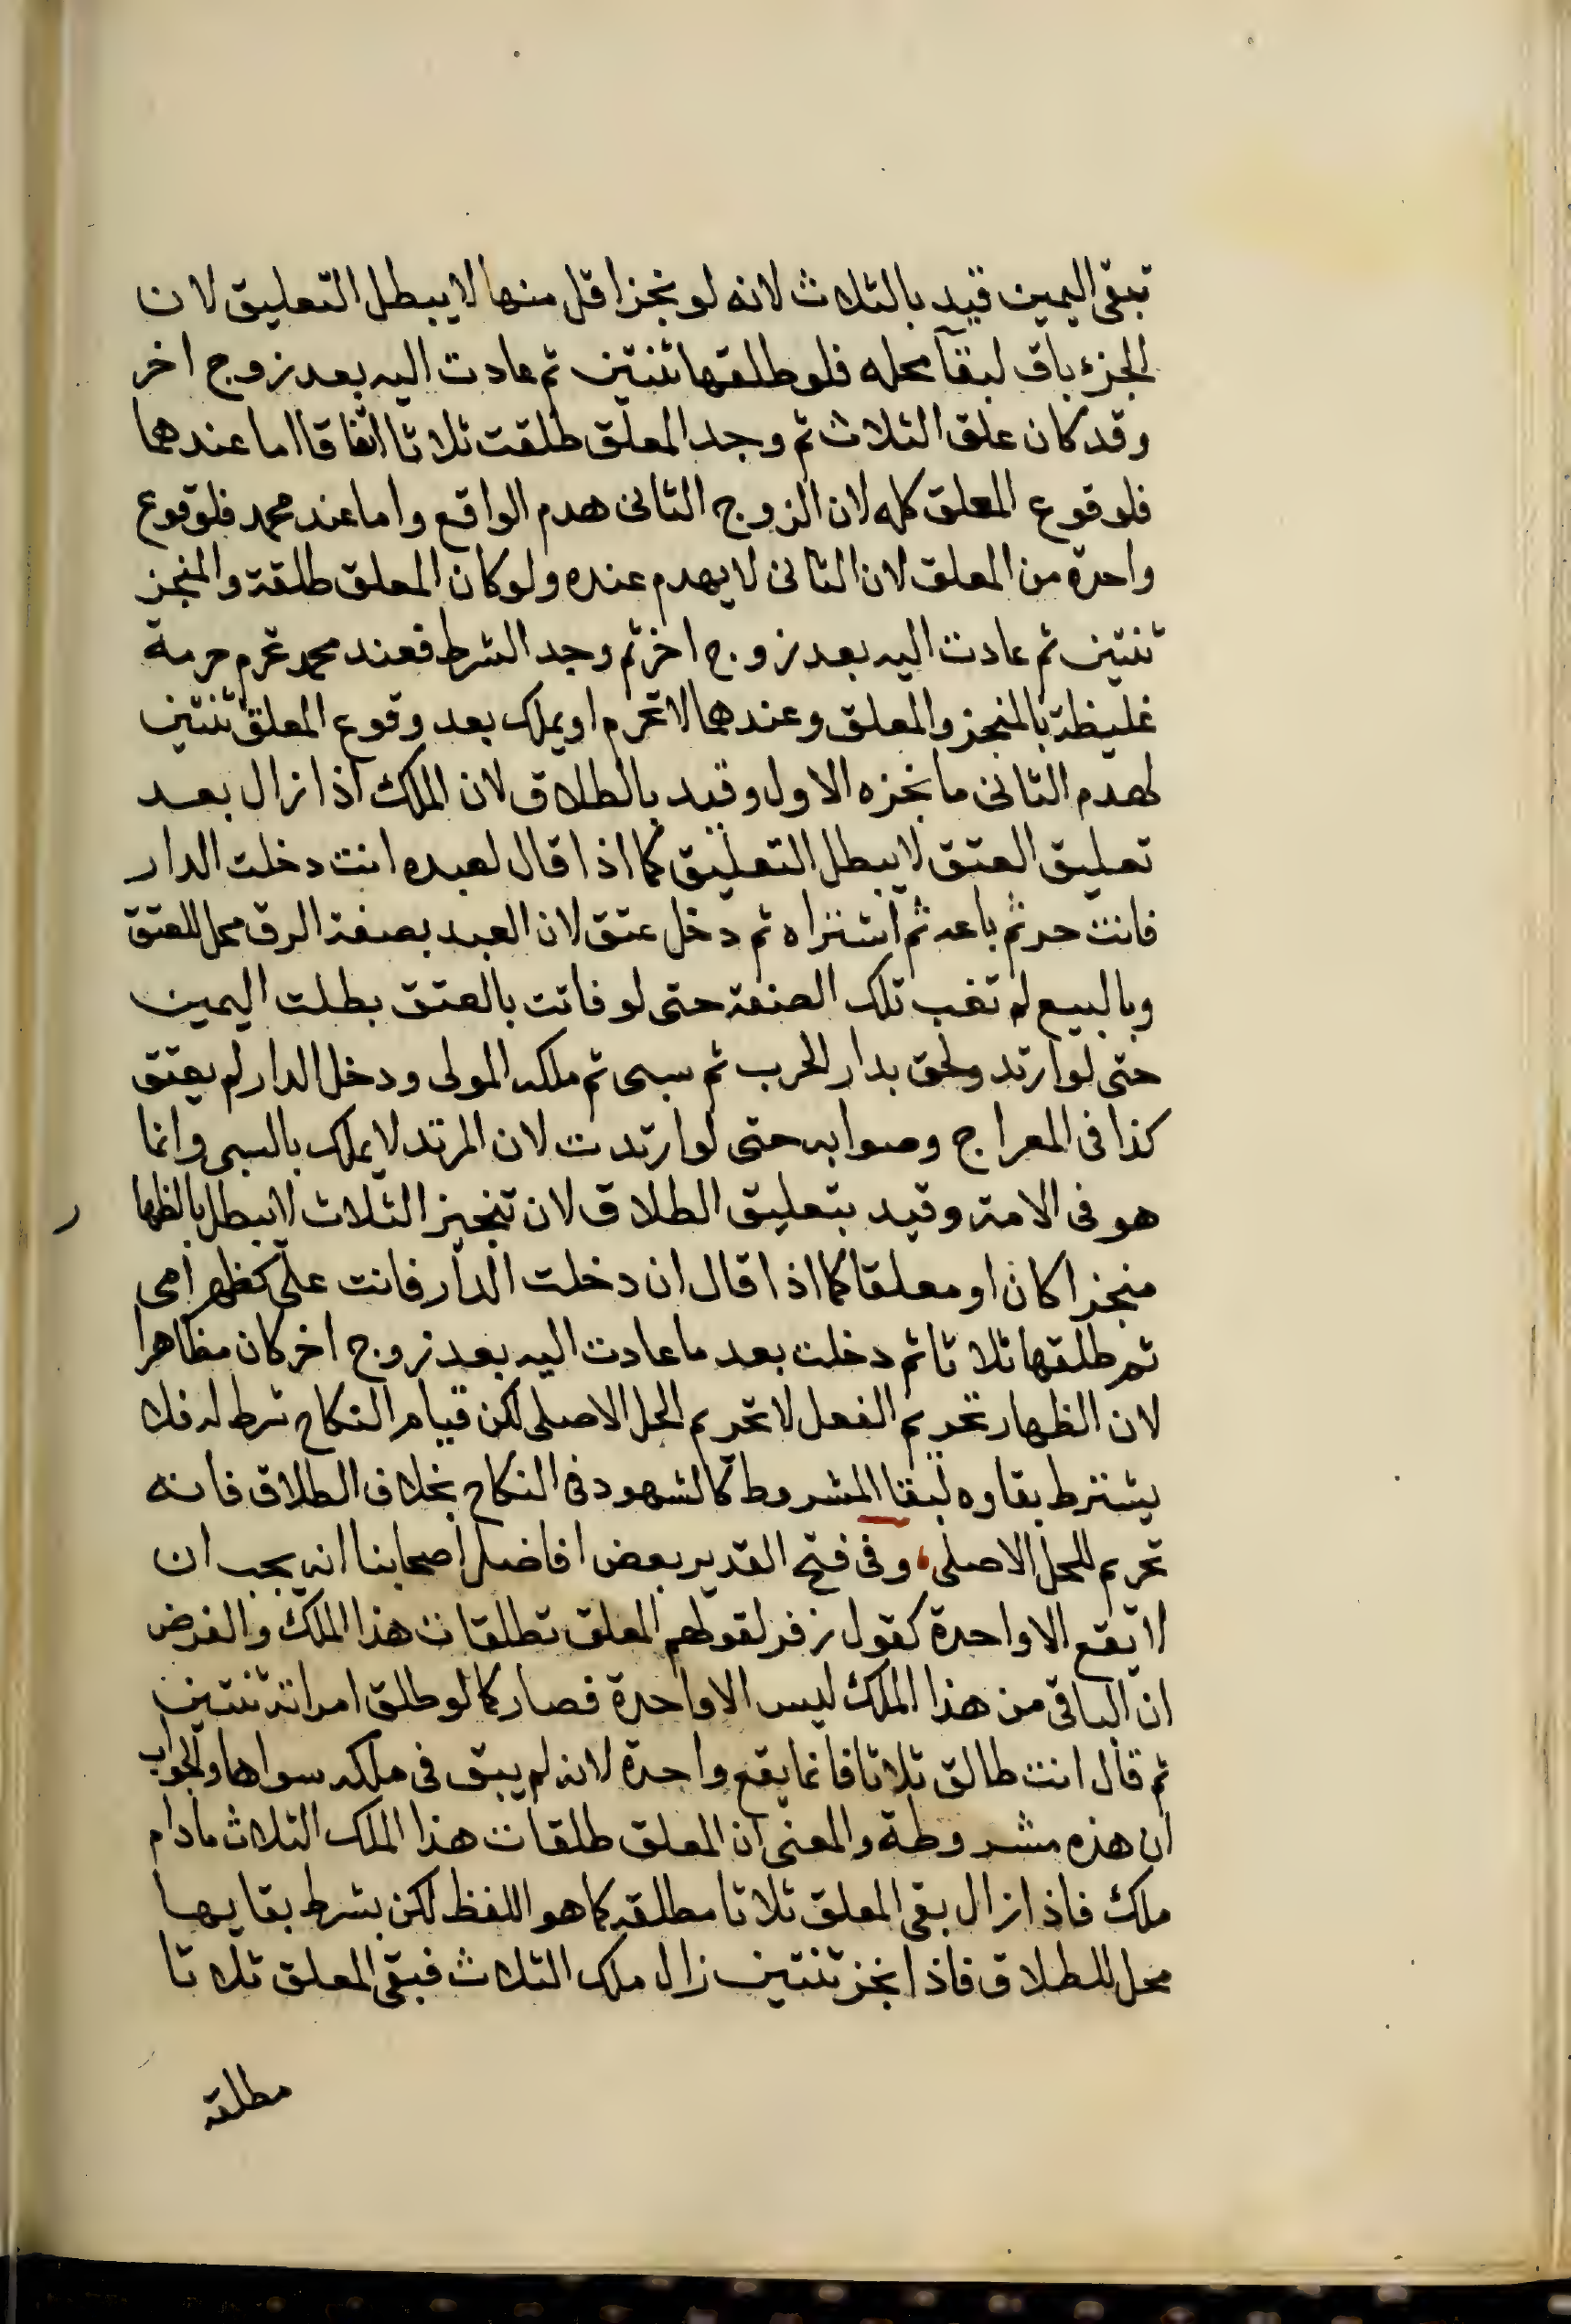 تبقى اليمين قيد بالثلاث لانه لو نجز اقل منها لا يبطل التعليق لان
الجزء باق لبقآ محله فلو طلقها ثنتين ثم عادت اليه بعد زوج اخر
وقد كان علق الثلاث ثم وجد المعلق طلقت ثلاثا اتفاقا اما عندهما
فلوقوع المعلق كله لان الزوج الثانى هدم الواقع واما عند محمد فلوقوع
واحدة من المعلق لان الثانى لا يهدم عنده ولو كان المعلق طلقة والمنجز
ثنتين ثم عادت اليه بعد زوج اخر ثم وجد الشرط فعند محمد تحرم حرمة
غليظة بالمنجز والمعلق وعندهما لا تحرم او يملك بعد وقوع المعلق ثنتين
لهدم الثانى ما نجزه الاول وقيد بالطلاق لان الملك اذا زال بعد
تعليق العتق لا يبطل التعليق كما اذا قال لعبده انت دخلت الدار
فانت حر ثم باعه ثم اشتراه ثم دخل عتق لان العبد بصفة الرق محل للعتق
وبالبيع لم تغب تلك الصفة حتى لو فاتت بالعتق بطلت اليمين
حتى لو ارتد ولحق بدار الحرب ثم سبى ثم ملكه المولى ودخل الدار لم يعتق
كذا فى المعراج وصوابه حتى لو ارتدت لان المرتد لا يملك بالسبى وانما
هو فى الامة وقيد بتعليق الطلاق لان تنجيز الثلاث لا يبطل بالظها ر
منجزا كان او معلقا كما اذا قال ان دخلت الدار فانت على كظهر امى
ثم طلقها ثلاثا ثم دخلت بعد ما عادت اليه بعد زوج اخر كان مظاهرا
لان الظهار تحريم الفعل لا تحريم الحل الاصلى لكن قيام النكاح شرط له فلا
يشترط بقاوه لبقا المشروط كالشهود فى النكاح بخلاف الطلاق فانه
تحريم للحل الاصلى، وفى فتح القدير بعض افاضل اصحابنا انه يجب ان
لا تقع الا واحدة كقول زفر لقولهم المعلق تطلقات هذا الملك والفرض
ان الباقى من هذا الملك ليس الا واحدة فصار كما لو طلق امراته ثنتين
ثم قال انت طالق ثلاثا فانما يقع واحدة لانه لم يبق فى ملكه سواها والجواب
ان هذه مشروطة والمعنى ان المعلق طلقات هذا الملك الثلاث مادام
ملك فاذا زال بقى المعلق ثلاثا مطلقه كما هو اللفظ لكن بشرط بقايها
محل للطلاق فاذا نجز ثنتين زال ملك الثلاث فبقى المعلق ثلاثا
مطلقه